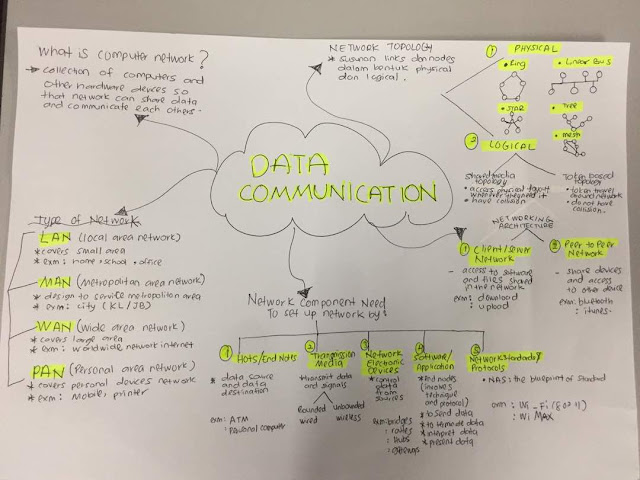 What is computer network?
collection of computers and
other hardware devices so
that network can share data
and communicate each others.
NETWORK TOPOLOGY
* susunan links dan nodes
dalam bentuk physical
dan logical.
1 PHYSICAL
• Ring
• Linear Bus
• STAR
• Tree
• mesh
2 LOGICAL
shared media
topology
• access physical layout
whenever they need it
• have collision
Token based
topology
• token travel
around network
• do not have
collision.
DATA
COMMUNICATION
Type of Network
LAN (local area network)
* covers small area
* exm: home • school • office
MAN (Metropolitan area network)
* design to service metropolitan area
* exm: city (KL/JB)
WAN (Wide area network)
* covers large area
* exm: worldwide network internet
PAN (Personal area network)
* covers personal devices network
* exm: Mobile, printer
NETWORKING
ARCHITECTURE
1 Client/Server
Network
- access to software
and files shared
in the network
exm: download
: upload
2 Peer to Peer
Network
- share devices
and access
to other device
exm: bluetooth
: itunes.
Network component Need
to set up network by:
1 Hots/End Notes
* data source
and data
destination
exm: ATM
: personal computer
2 Transmission
Media
* transmit data
and signals
Bounded
wired
Unbounded
wireless
3 Network
Electronic
Devices
* control
data
from
sources
exm: bridges
: routes
: hubs
4 Software/
Application
* End nodes
(involves
technique
and protocol)
* to send data
* interpret data
* present data
5 Network Standards &
Protocols
• NAS: the blueprint of standard
exm: Wi-Fi (802.11)
: Wi MAX